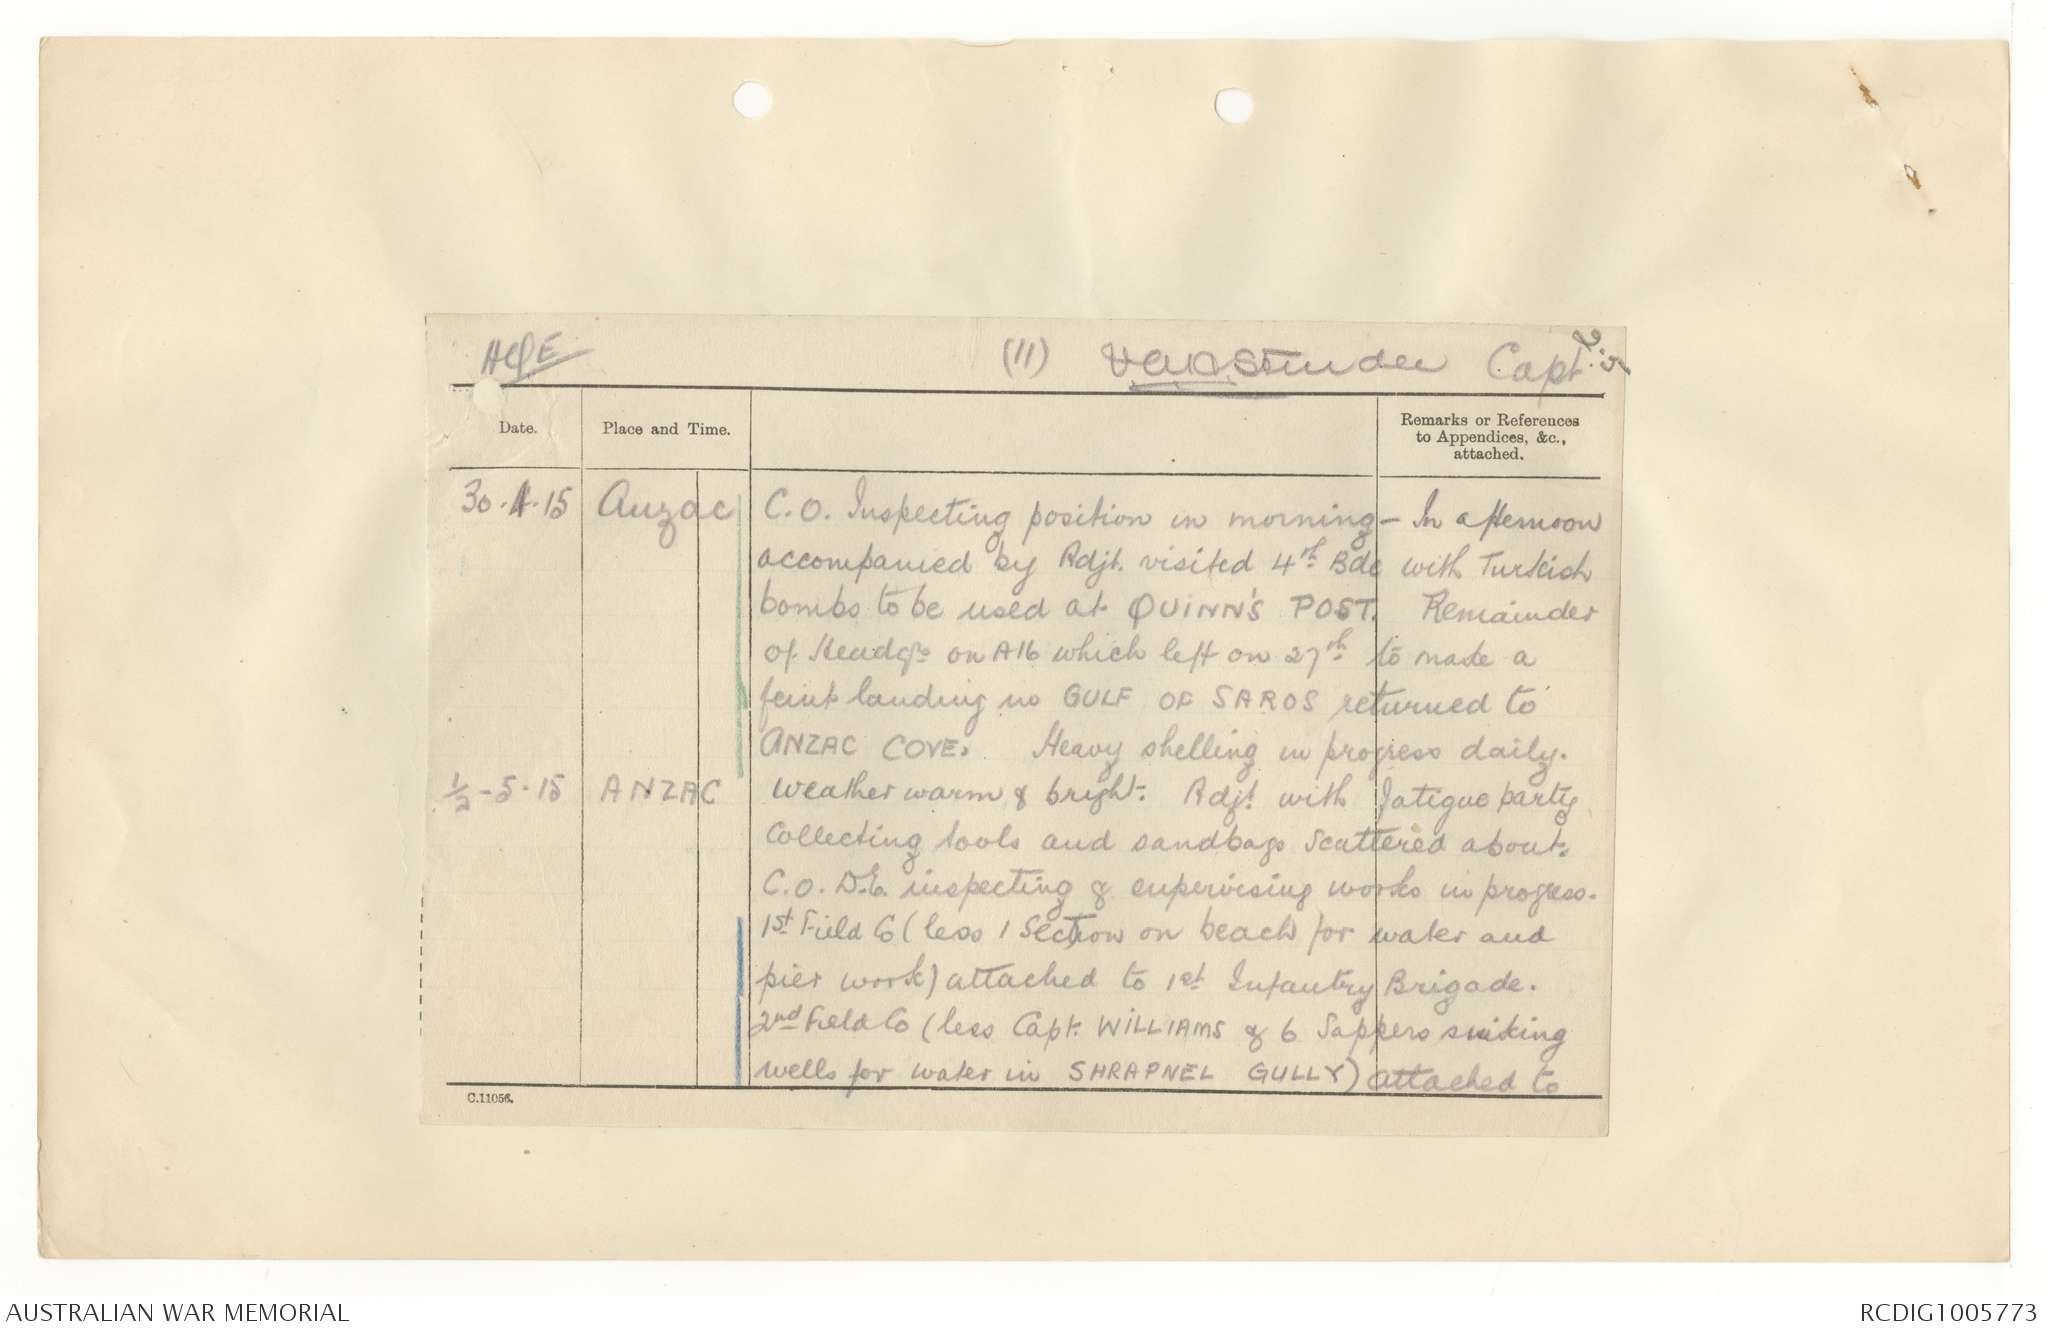 (11) Capt.
Date. Place and Time. Remarks or References
to Appendices, &c.,
attached.
30.4.15 Anzac C.O. Inspecting position in morning - In afternoon
accompanied by Adjt. visited 4th Bde with Turkish
bombs to be used at QUINN'S POST. Remainder
of Headqrs on A16 which left on 27th to make a
feint landing in GULF OF SAROS returned to
ANZAC COVE. Heavy shelling in progress daily.
1/2-5-15 ANZAC Weather warm & bright. Adjt with fatigue party
Collecting tools and sandbags scattered about.
C.O. D.E. inspecting & supervising works in progress.
1st Field Co (less 1 Section on beach for water and
pier work) attached to 1st Infantry Brigade.
2nd Field Co (less Capt. WILLIAMS & 6 Sappers sinking
wells for water in SHRAPNEL GULLY) attached to
C.11056.
AUSTRALIAN WAR MEMORIAL RCDIG1005773